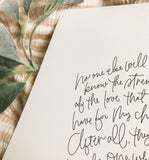 No one else will
know the stren
of the love that
have for my ch
After all, thu